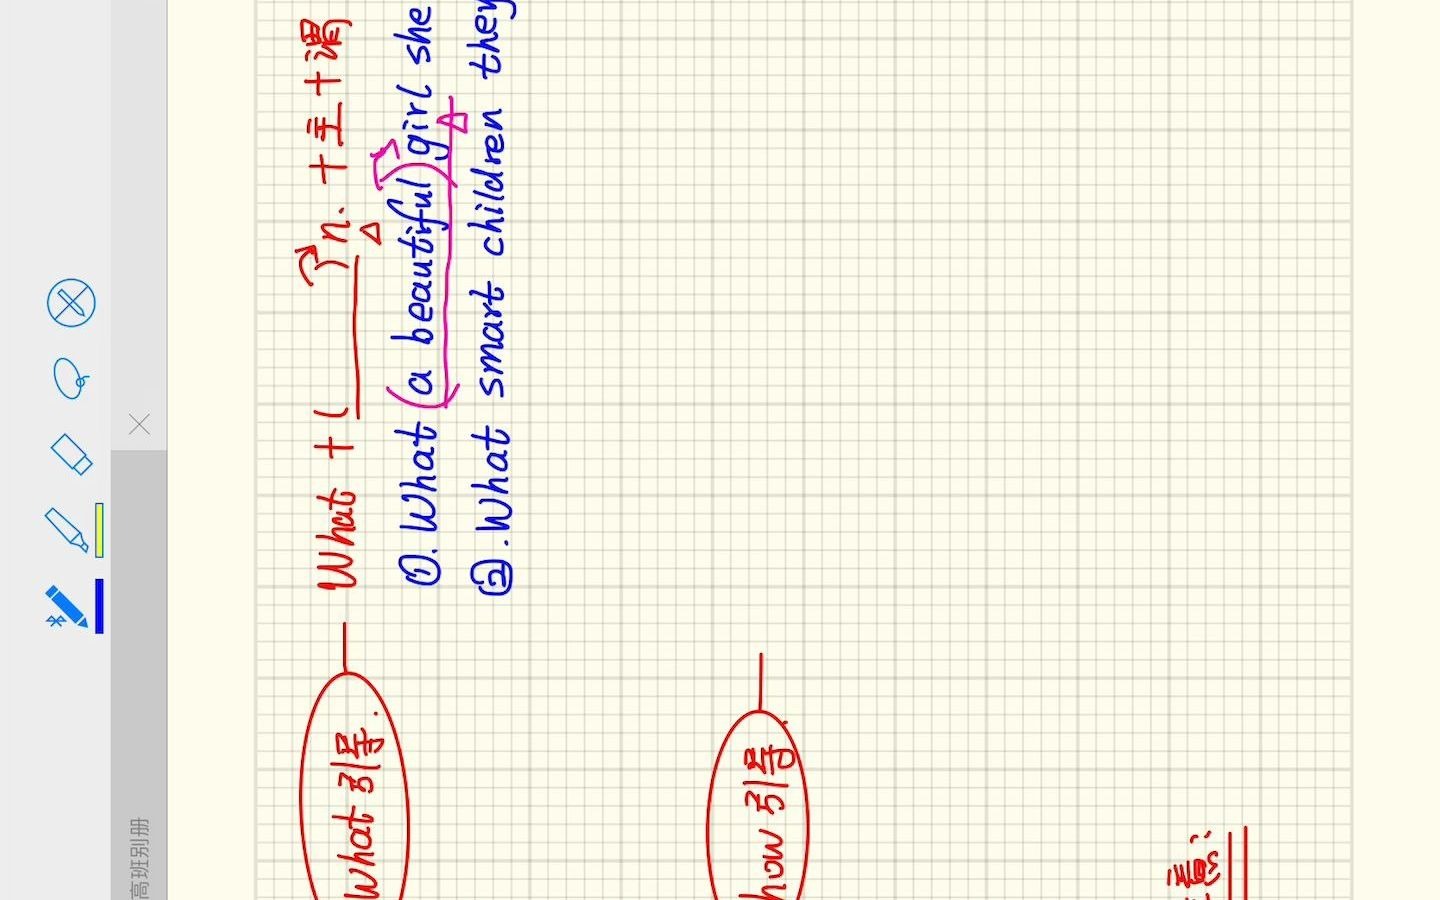 What引导.
What + (____) n. + 主 + 谓
①. What (a beautiful) girl she
②. What smart children they
how引导.
意:
高班别册